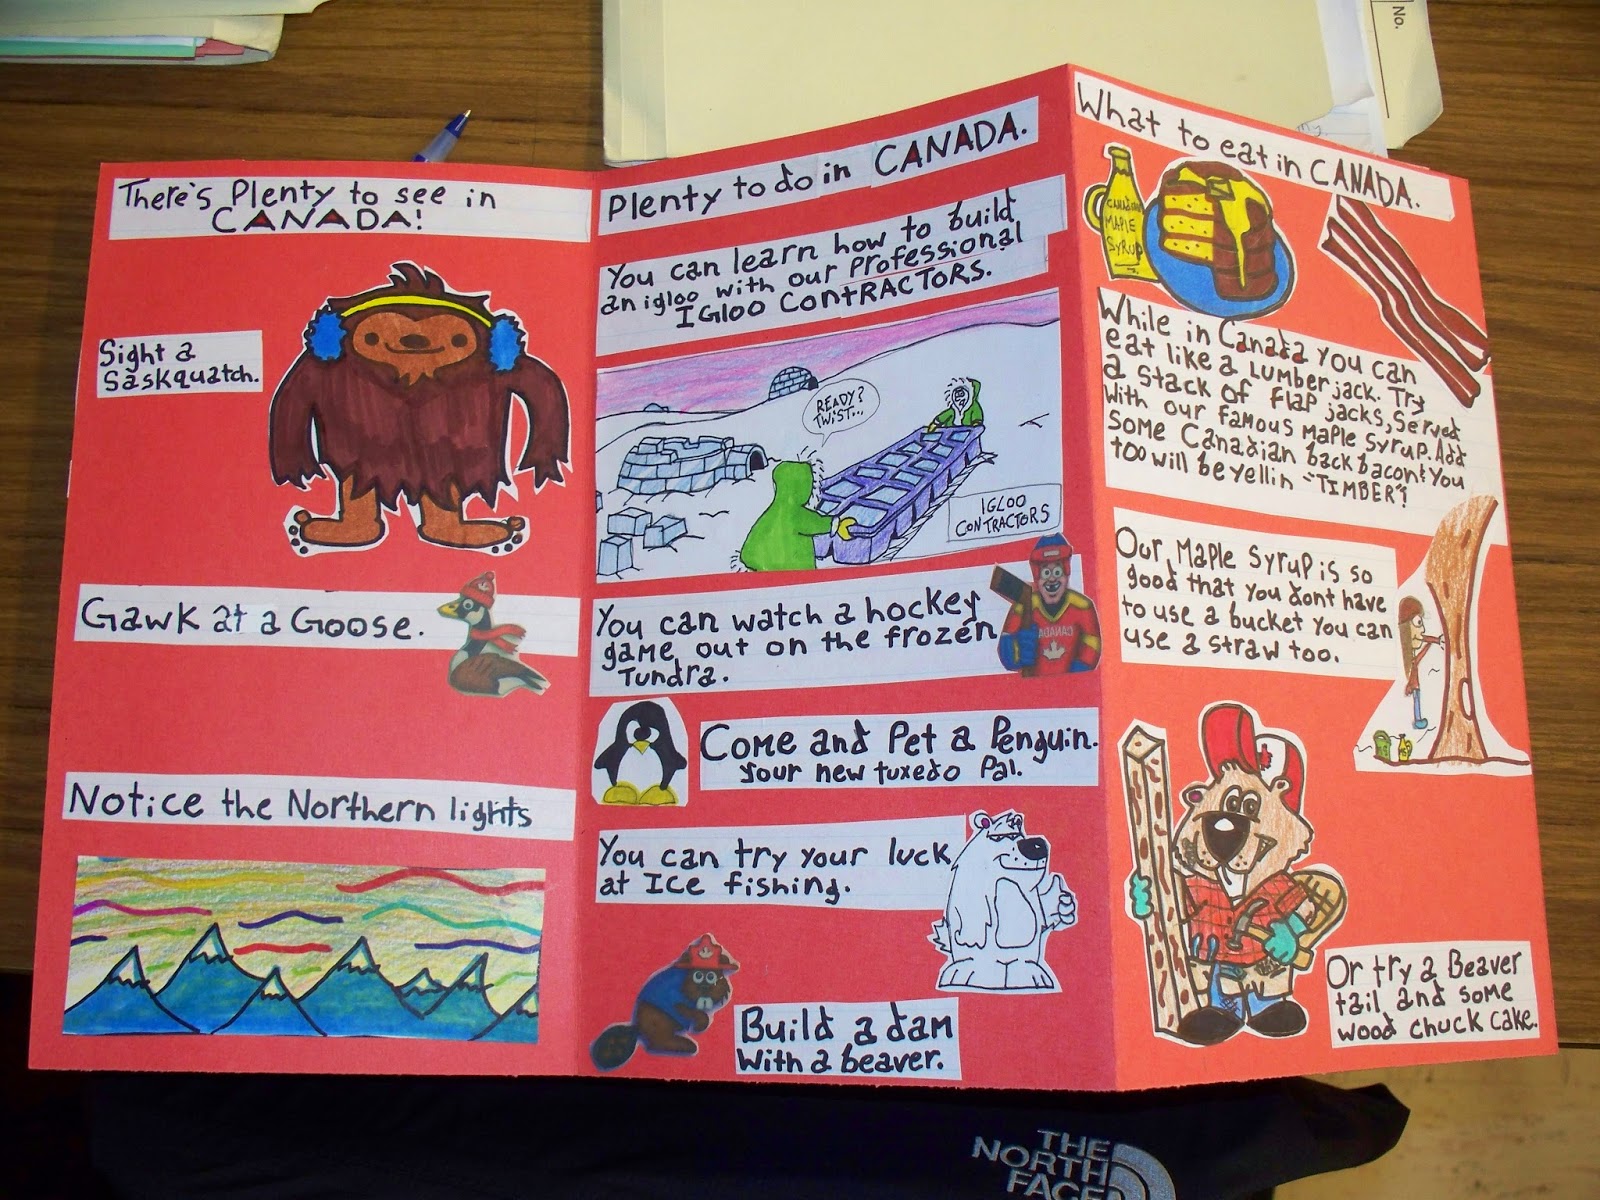 There's Plenty to see in
CANADA!
Sight a
Saskquatch.
Gawk at a Goose.
Notice the Northern lights
Plenty to do in CANADA.
You can learn how to build
an igloo with our Professional
IGLOO CONTRACTORS.
READY?
TWIST...
IGLOO
CONTRACTORS
You can watch a hockey
game out on the frozen
Tundra.
CANADA
Come and Pet a Penguin.
Your new tuxedo Pal.
You can try your luck
at Ice fishing.
Build a dam
With a beaver.
What to eat in CANADA.
CANADIAN
MAPLE
SYRUP
While in Canada you can
eat like a Lumber jack. Try
a stack of flap jacks, Served
With our famous Maple Syrup. Add
Some Canadian back bacon & You
TOO will be yellin "TIMBER"!
Our Maple Syrup is so
good that you dont have
to use a bucket you can
use a straw too.
Or try a Beaver
tail and some
wood chuck cake.
No.
THE
NORTH
FACE